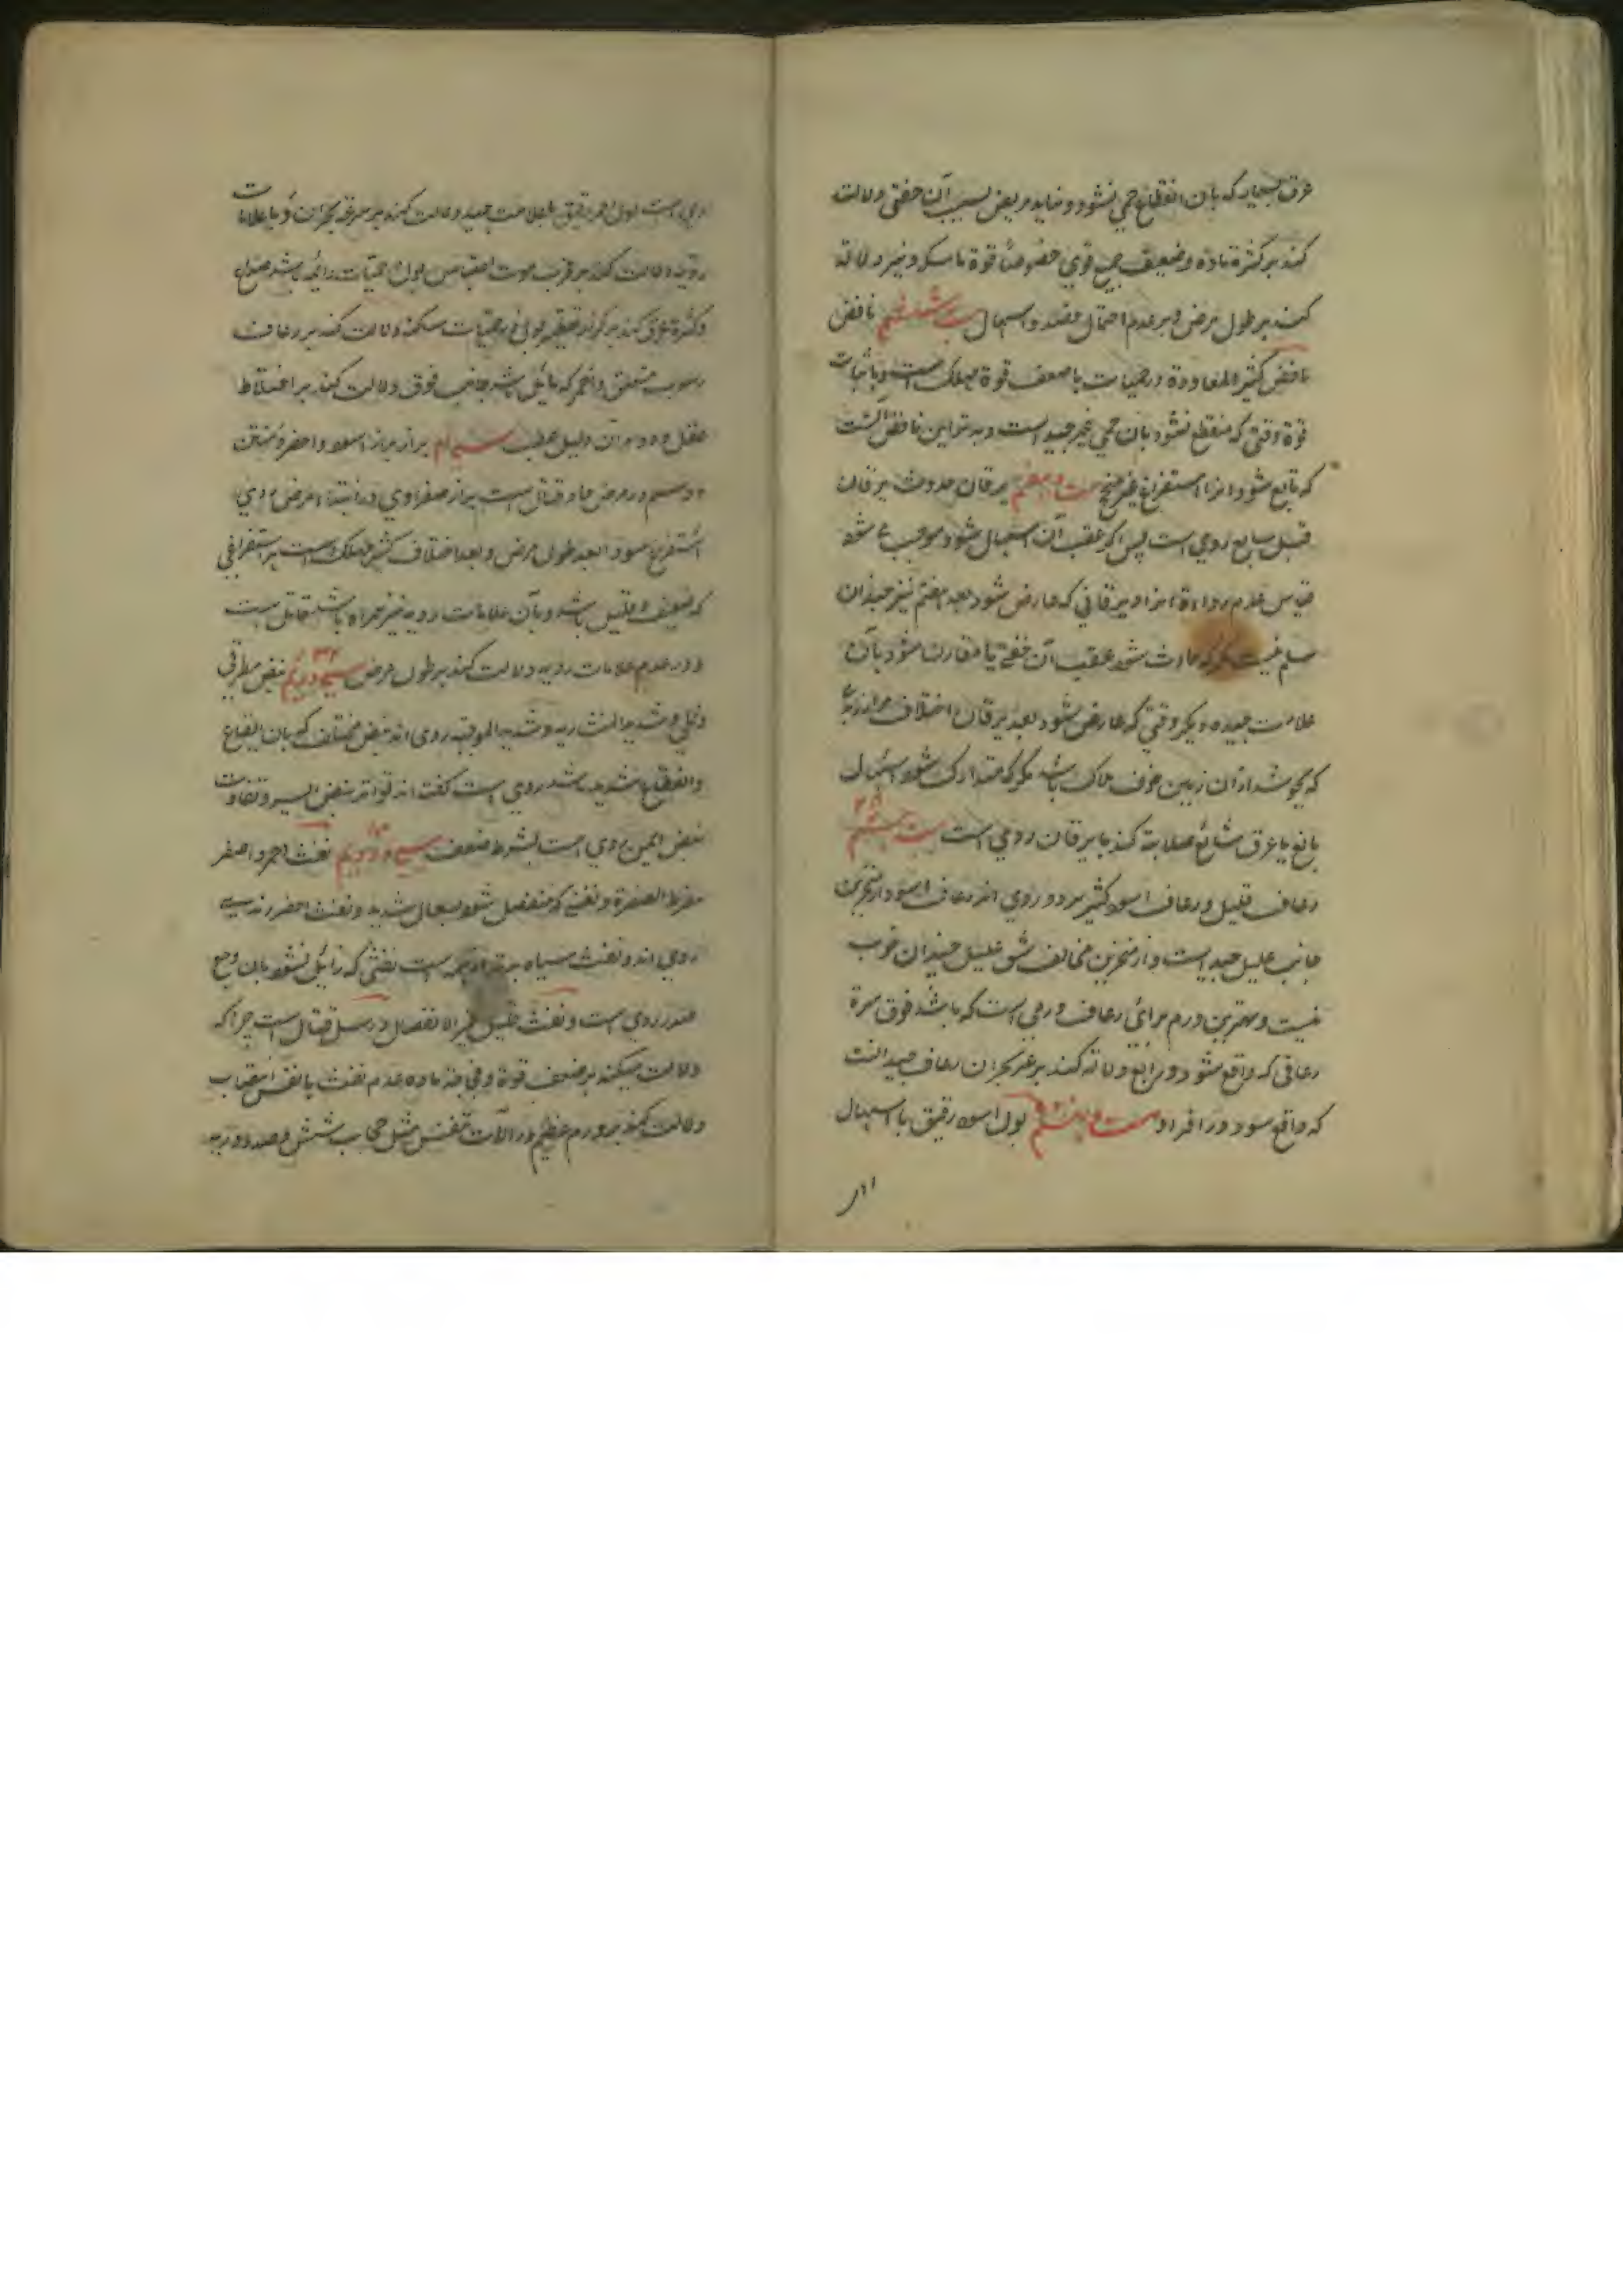 عرق بسیار که بان انقطاع حمی نشود و نیابد مریض بسبب آن خفتی دلالت
کند بر کثرة ماده و ضعیف جمیع قوی خصوصاً قوة ماسکه و نیز دلالة
کند بر طول مرض و بر عدم احتمال فصد و اسهال بیست و ششم نافض
نافض کثیر المعاودة در حمیات با ضعف قوة مهلک است و با ثبات
قوة وقتی که منقطع نشود بان حمی غیر جید است و بدتر این نافض آنست
که تابع شود انرا استفراغ غیر منجح بیست و هفتم یرقان حدوث یرقان
قبل سابع ردی است پس اگر عقب آن اسهال شود موجب شود
قیاس عدم رداءة انرا و یرقانی که عارض شود بعد هفتم نیز چندان
سلیم نیست مگر که حادث شود عقب آن خفتی یا مقارن شود بآن
علامت جیده دیگر وقتی که عارض شود بعد یرقان اختلاف مراری
که بجوشد از ان زمین خوف هلاک باشد مگر که متدارک شود اسهال
بالغ یا عرق شائع صلابة کبد با یرقان ردی است بیست و هشتم
رعاف قلیل و رعاف اسود کثیر هر دو ردی اند رعاف اسود از منخرین
جانب علیل جید است و از منخرین مخالف شق علیل چندان خوب
نیست و بهترین ورم برائی رعاف ورمی است که باشد فوق سرة
رعافی که واقع شود در رابع دلالة کند بر عسر بحران رعاف جید آنست
که واقع شود در افراد بیست و نهم بول اسود رقیق با اسهال
ردی است بول احمر رقیق با علامت جید دلالت کند بر سرعة بحران و با علامات
ردیه دلالت کند بر قرب موت احتباس بول در حمیات دائمه باشد صداع
و کثرة عرق کند بر کزاز تقطیر بول در حمیات ساکنه دلالت کند بر رعاف
رسوب متعلق و احمر که مائل باشد جانب فوق دلالت کند بر اختلاط
عقل و دوام آن دلیل عطب سی ام براز براز اسود و اخضر و منتن
و دسم در مرض حاد قتال است براز صفراوی در ابتداء مرض ردی
استفراغ سودا بعد طول مرض و بعد اختلاف کثیر مهلک است هر استفراغی
که ضعیف و قلیل باشد و بآن علامات ردیه نیز همراه باشد قاتل است
و در عدم علامات ردیه دلالت کند بر طول مرض سی و یکم نبض مطرقی
و نملی و شدید المنشاریه و شدید الموجیه ردی اند نبض مختلف که بان ارتفاع
و انقطاع شدید باشد ردی است گفته اند تواتر نبض ایسر و تفاوت
نبض ایمن ردی است بشرط ضعف سی و دویم نفث احمر و اصفر
مفرط الصفرة و نفثی که منفصل شود بسعال شدید و نفث اخضر زبدی
ردی اند و نفث سیاه بدتر از همه است نفثی که زائل نشود بان وجع
صدر ردی است و نفث قلیل غیر الانفصال در سل قتال است چرا که
دلالت میکند بر ضعف قوة و فجاجة ماده عدم نفث با نفس انتصاب
دلالت کند بر ورم عظیم در آلات تنفس مثل حجاب شش و صدر و ریه